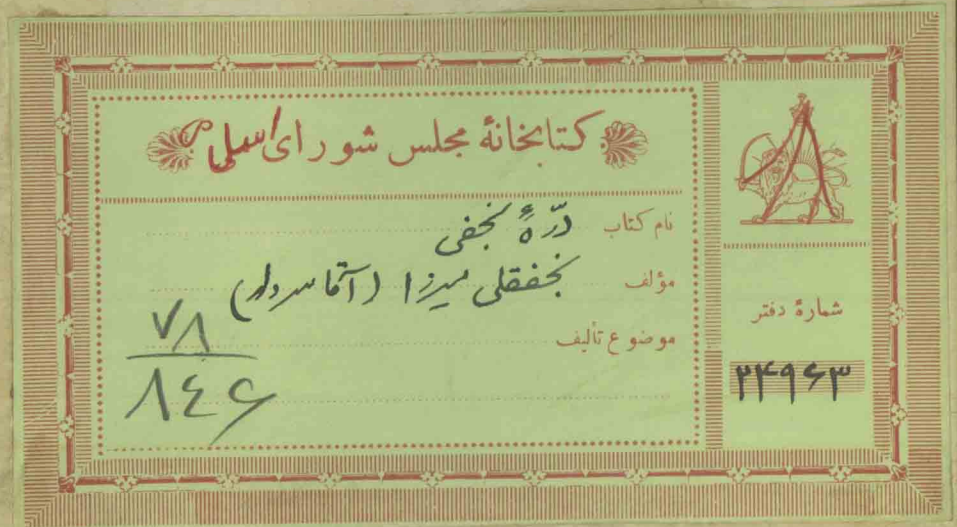 کتابخانهٔ مجلس شورای اسلامی
نام کتاب درّهٔ نجفی
مؤلف نجفقلی میرزا (آقا سردار)
موضوع تألیف
شمارهٔ دفتر
۲۴۹۶۳
۷۸
۸۴۶